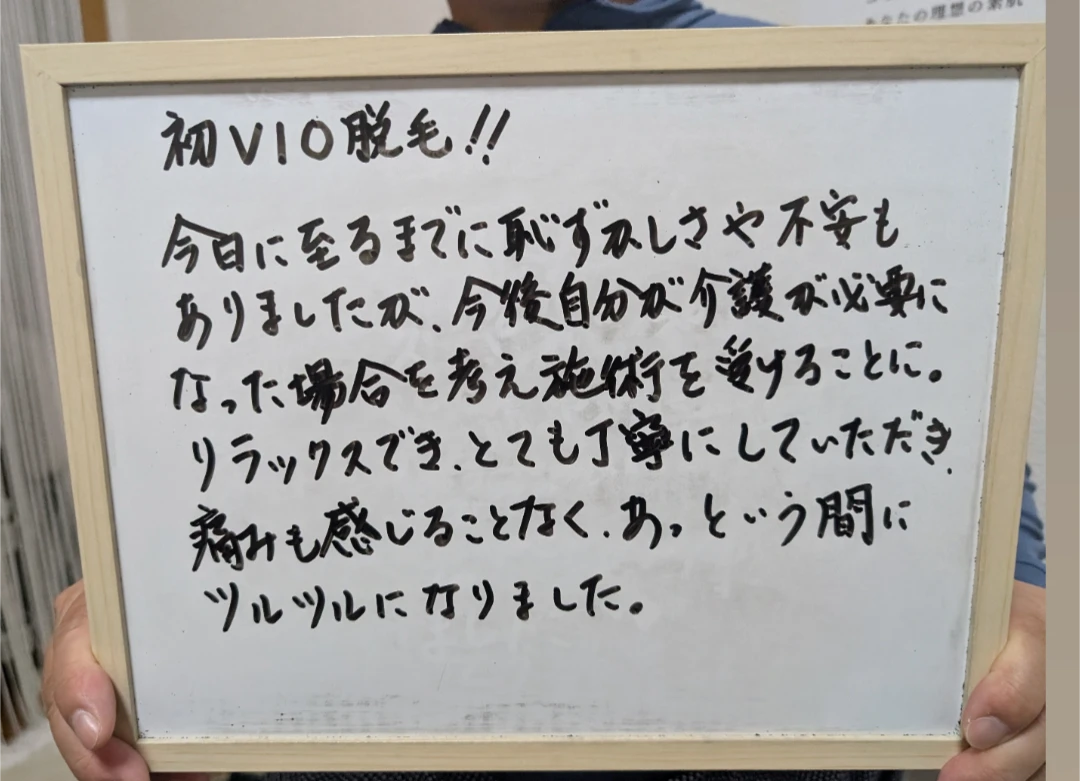 あなたの理想の素肌
初VIO脱毛!!
今日に至るまでに恥ずかしさや不安も
ありましたが、今後自分が介護が必要に
なった場合を考え施術を受けることに。
リラックスでき、とても丁寧にしていただき、
痛みも感じることなく、あっという間に
ツルツルになりました。